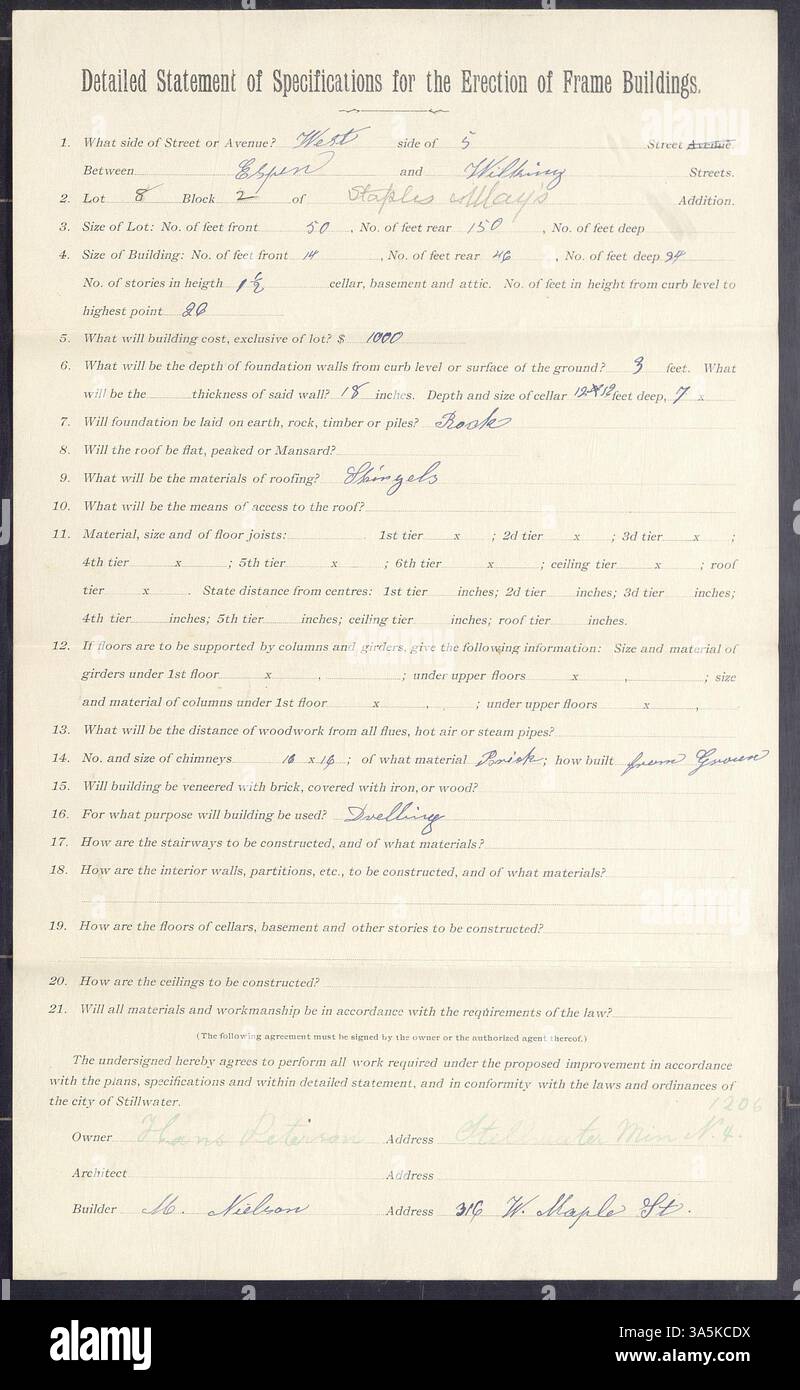 Detailed Statement of Specifications for the Erection of Frame Buildings.
1. What side of Street or Avenue? West side of 5 Street Avenue
Between Espen and Wilking Streets.
2. Lot 8 Block 2 of Staples & May's Addition.
3. Size of Lot: No. of feet front 50, No. of feet rear 150, No. of feet deep
4. Size of Building: No. of feet front 14, No. of feet rear 26, No. of feet deep 24
No. of stories in heigth 1 1/2 cellar, basement and attic. No. of feet in height from curb level to
highest point 20
5. What will building cost, exclusive of lot? $ 1000
6. What will be the depth of foundation walls from curb level or surface of the ground? 3 feet. What
will be the thickness of said wall? 18 inches. Depth and size of cellar 12x12 feet deep, 7 x
7. Will foundation be laid on earth, rock, timber or piles? Rock
8. Will the roof be flat, peaked or Mansard?
9. What will be the materials of roofing? Shingels
10. What will be the means of access to the roof?
11. Material, size and of floor joists: 1st tier x ; 2d tier x ; 3d tier x ;
4th tier x ; 5th tier x ; 6th tier x ; ceiling tier x ; roof
tier x . State distance from centres: 1st tier inches; 2d tier inches; 3d tier inches;
4th tier inches; 5th tier inches; ceiling tier inches; roof tier inches.
12. If floors are to be supported by columns and girders, give the following information: Size and material of
girders under 1st floor x , ; under upper floors x , ; size
and material of columns under 1st floor x , ; under upper floors x ,
13. What will be the distance of woodwork from all flues, hot air or steam pipes?
14. No. and size of chimneys 16 x 16 ; of what material Brick ; how built from Groun
15. Will building be veneered with brick, covered with iron, or wood?
16. For what purpose will building be used? Dvelling
17. How are the stairways to be constructed, and of what materials?
18. How are the interior walls, partitions, etc., to be constructed, and of what materials?
19. How are the floors of cellars, basement and other stories to be constructed?
20. How are the ceilings to be constructed?
21. Will all materials and workmanship be in accordance with the requirements of the law?
(The following agreement must be signed by the owner or the authorized agent thereof.)
The undersigned hereby agrees to perform all work required under the proposed improvement in accordance
with the plans, specifications and within detailed statement, and in conformity with the laws and ordinances of
the city of Stillwater.
1206
Owner Hans Peterson Address Stillwater Min N. 4.
Architect Address
Builder M. Nielson Address 316 W. Maple St.
alamy
Image ID: 3A5KCDX
www.alamy.com